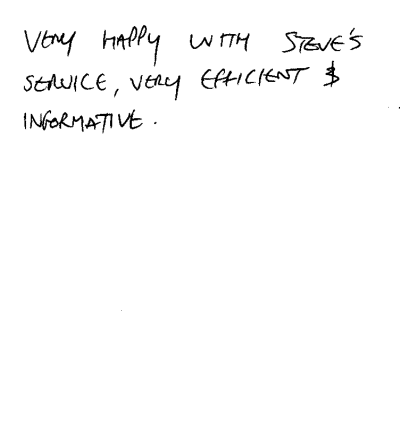 VERY HAPPY WITH STEVE'S
SERVICE, VERY EFFICIENT &
INFORMATIVE.